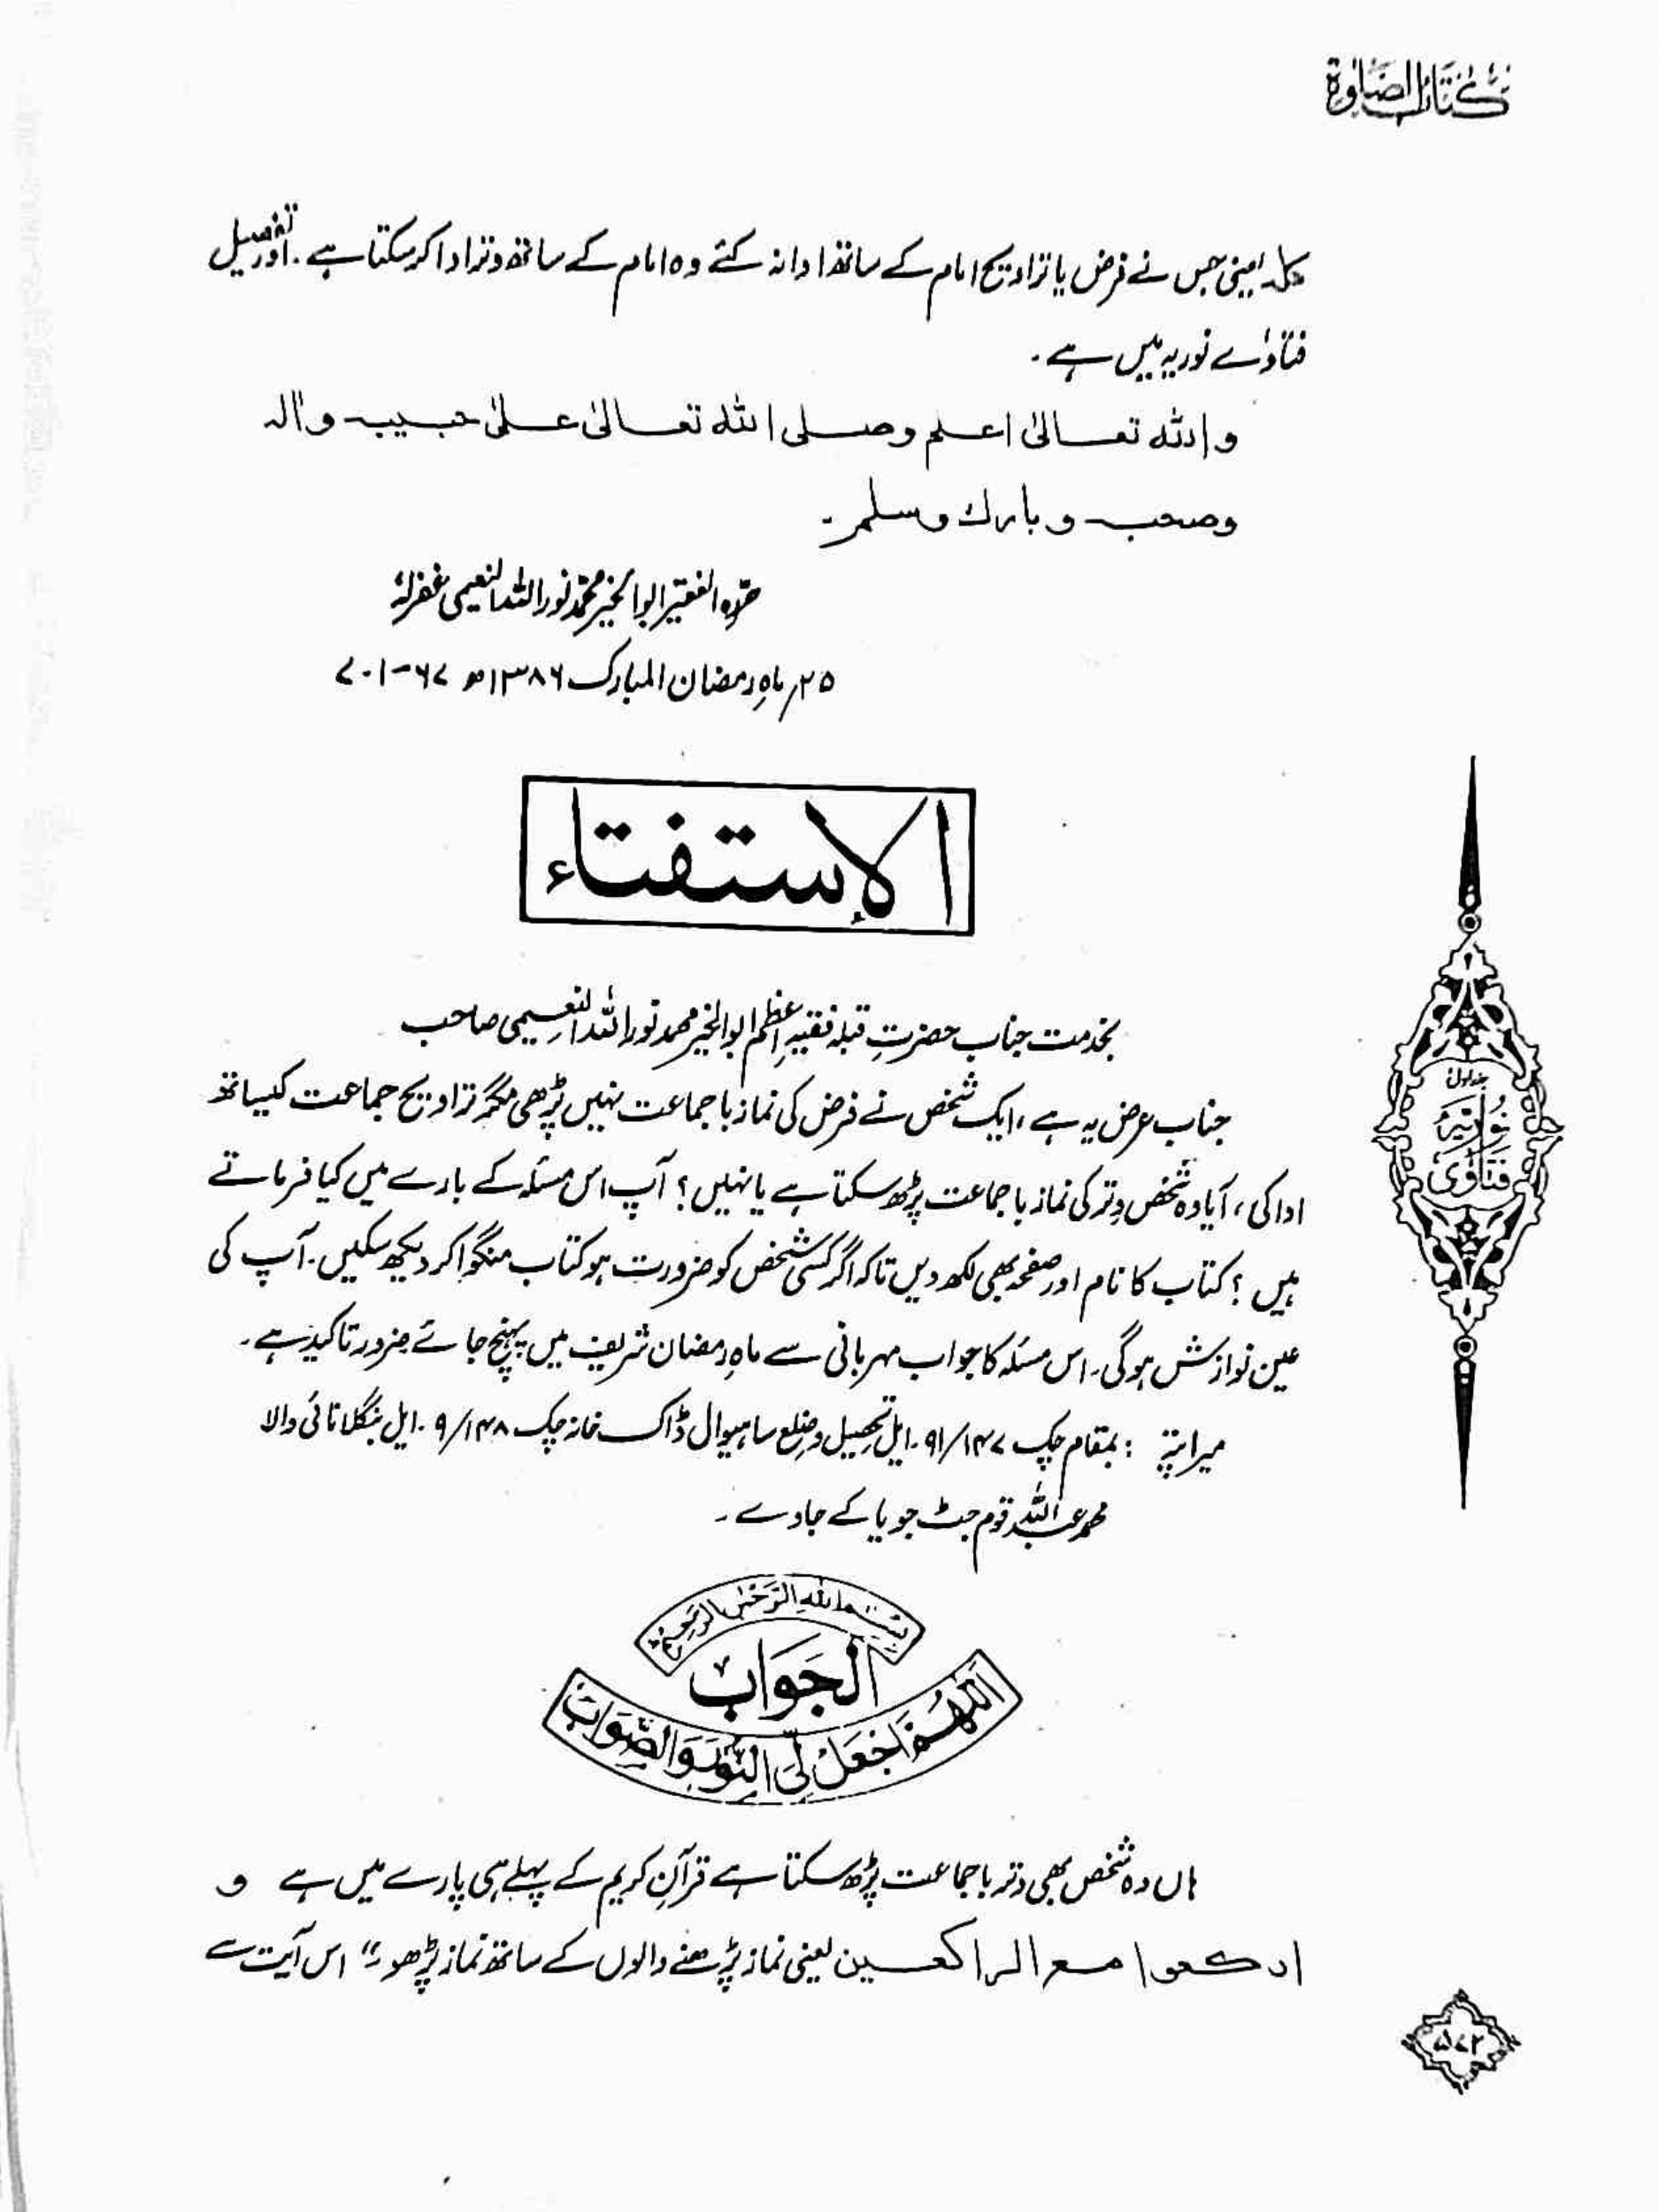 كتاب الصلوة
کلہ یعنی جس نے فرض یا تراویح امام کے ساتھ ادا نہ کئے وہ امام کے ساتھ وتر ادا کر سکتا ہے۔ اور تفصیل
فتاوٰے نوریہ میں ہے۔
والله تعالیٰ اعلم وصلی الله تعالیٰ علیٰ حبیبہ واٰلہ
وصحبہ وبارك وسلم۔
حرّرہ الفقیر ابوالخیر محمد نور اللہ النعیمی غفرلہٗ
۲۵؍ ماہِ رمضان المبارک ۱۳۸۶ھ ۶۷-۱-۷
الإستفتاء
بخدمت جناب حضرتِ قبلہ فقیہِ اعظم ابوالخیر محمد نور اللہ النعیمی صاحب
جناب عرض یہ ہے، ایک شخص نے فرض کی نماز باجماعت نہیں پڑھی مگر تراویح جماعت کیساتھ
ادا کی، آیا وہ شخص وتر کی نماز باجماعت پڑھ سکتا ہے یا نہیں؟ آپ اس مسئلہ کے بارے میں کیا فرماتے
ہیں؟ کتاب کا نام اور صفحہ بھی لکھ دیں تاکہ اگر کسی شخص کو ضرورت ہو کتاب منگوا کر دیکھ سکیں۔ آپ کی
عین نوازش ہوگی۔ اس مسئلہ کا جواب مہربانی سے ماہِ رمضان شریف میں پہنچ جائے ضرور تاکید ہے۔
میرا پتہ : بمقام چک ۱۴۷/۹۱۔ایل تحصیل و ضلع ساہیوال ڈاک خانہ چک ۱۴۸/۹۔ایل بنگلا نائی والا
محمد عبداللہ قوم جٹ جویا کے جاوے۔
بسم الله الرحمٰن الرحيم
الجَوَابُ
اَللّٰهُمَّ اجْعَلْ لِّیَ النُّوْرَ وَالصَّوَابَ
ہاں وہ شخص بھی وتر باجماعت پڑھ سکتا ہے قرآنِ کریم کے پہلے ہی پارے میں ہے و
ارکعوا مع الراکعین یعنی نماز پڑھنے والوں کے ساتھ نماز پڑھو ”“ اس آیت سے
جلد اول
نُورِيَّة
فَتَاوٰى
۵۷۲